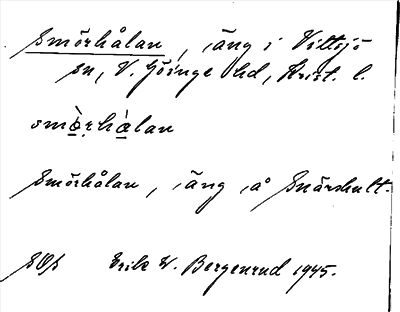 Smörhålan, äng i Vittsjö
sn, V. Göinge hd, Krist. l.
smö̀rhàlan
Smörhålan, äng å Snärshult.
SOÞ Erik W. Bergenrud 1945.